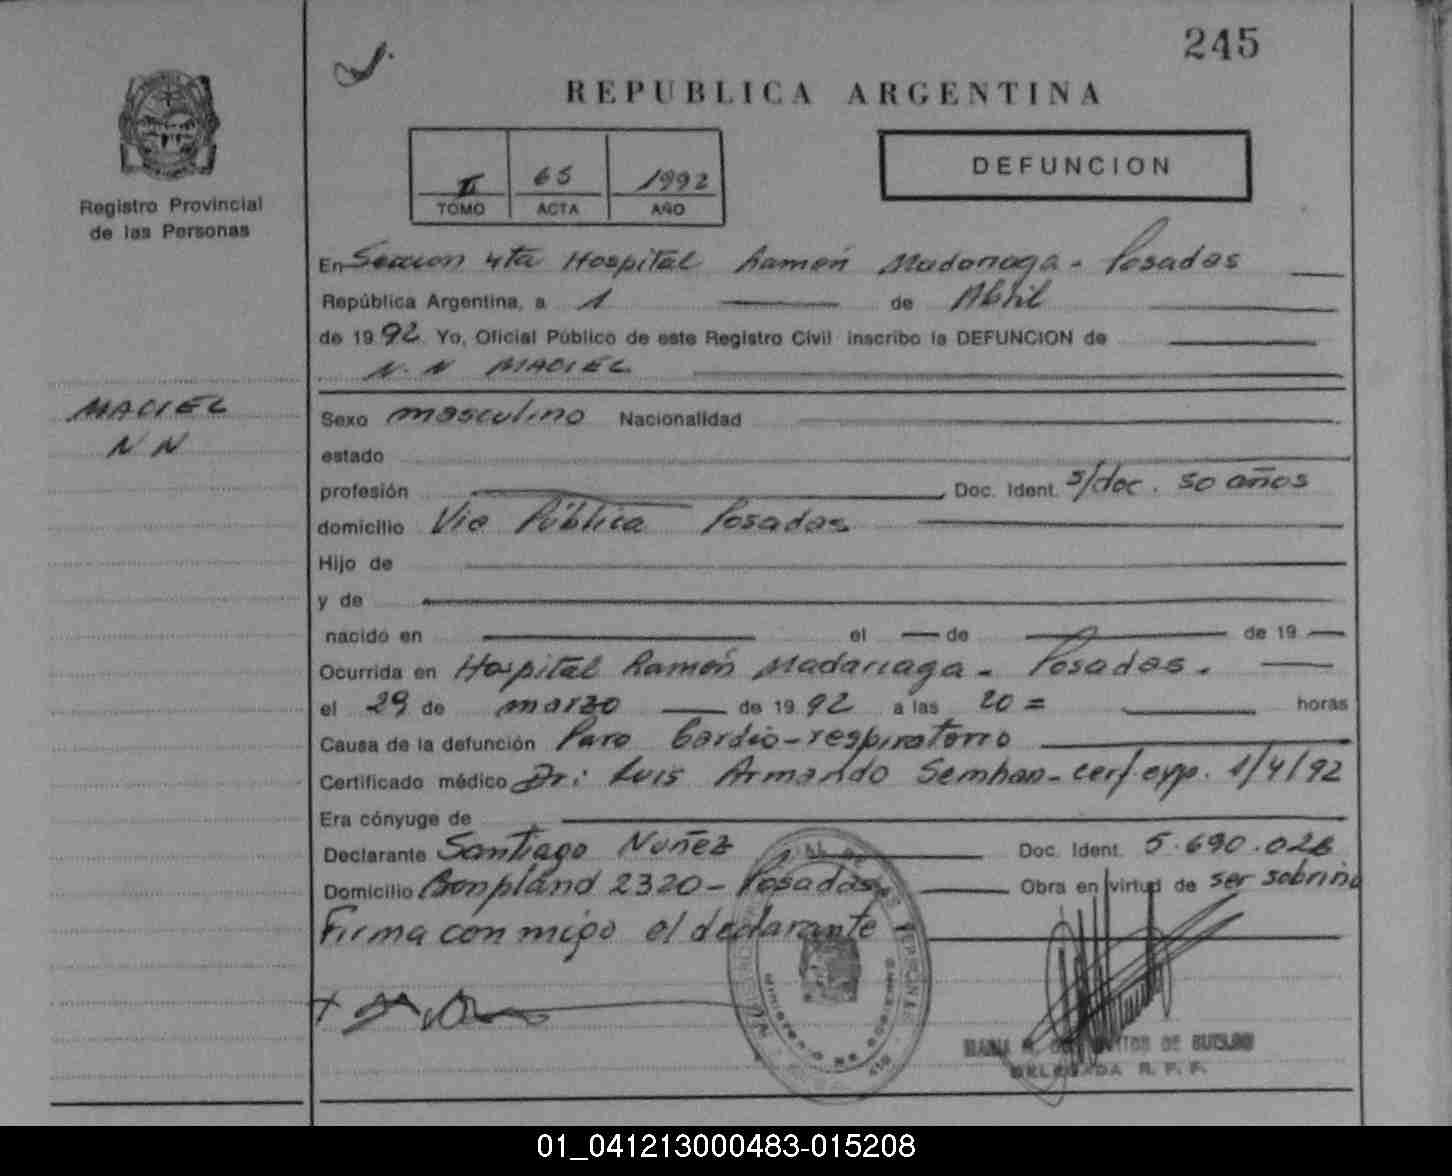 245
REPUBLICA ARGENTINA
II 65 1992
TOMO ACTA AÑO
DEFUNCION
Registro Provincial
de las Personas
En Seccion 4ta Hospital Ramón Madariaga - Posadas
República Argentina, a 1 de Abril
de 1992 Yo, Oficial Público de este Registro Civil inscribo la DEFUNCION de
N.N MACIEL
MACIEL
N N
Sexo masculino Nacionalidad
estado
profesión Doc. Ident. s/doc. 50 años
domicilio Via Pública Posadas
Hijo de
y de
nacido en el de de 19
Ocurrida en Hospital Ramón Madariaga - Posadas.
el 29 de marzo de 1992 a las 20= horas
Causa de la defunción Paro Cardio-respiratorio
Certificado médico Dr: Luis Armando Semhan - cert. exp. 1/4/92
Era cónyuge de
Declarante Santiago Nuñez Doc. Ident. 5.690.028
Domicilio Bonpland 2320 - Posadas Obra en virtud de ser sobrino
Firma conmigo el declarante
DELEGADA R. P. P.
01_041213000483-015208